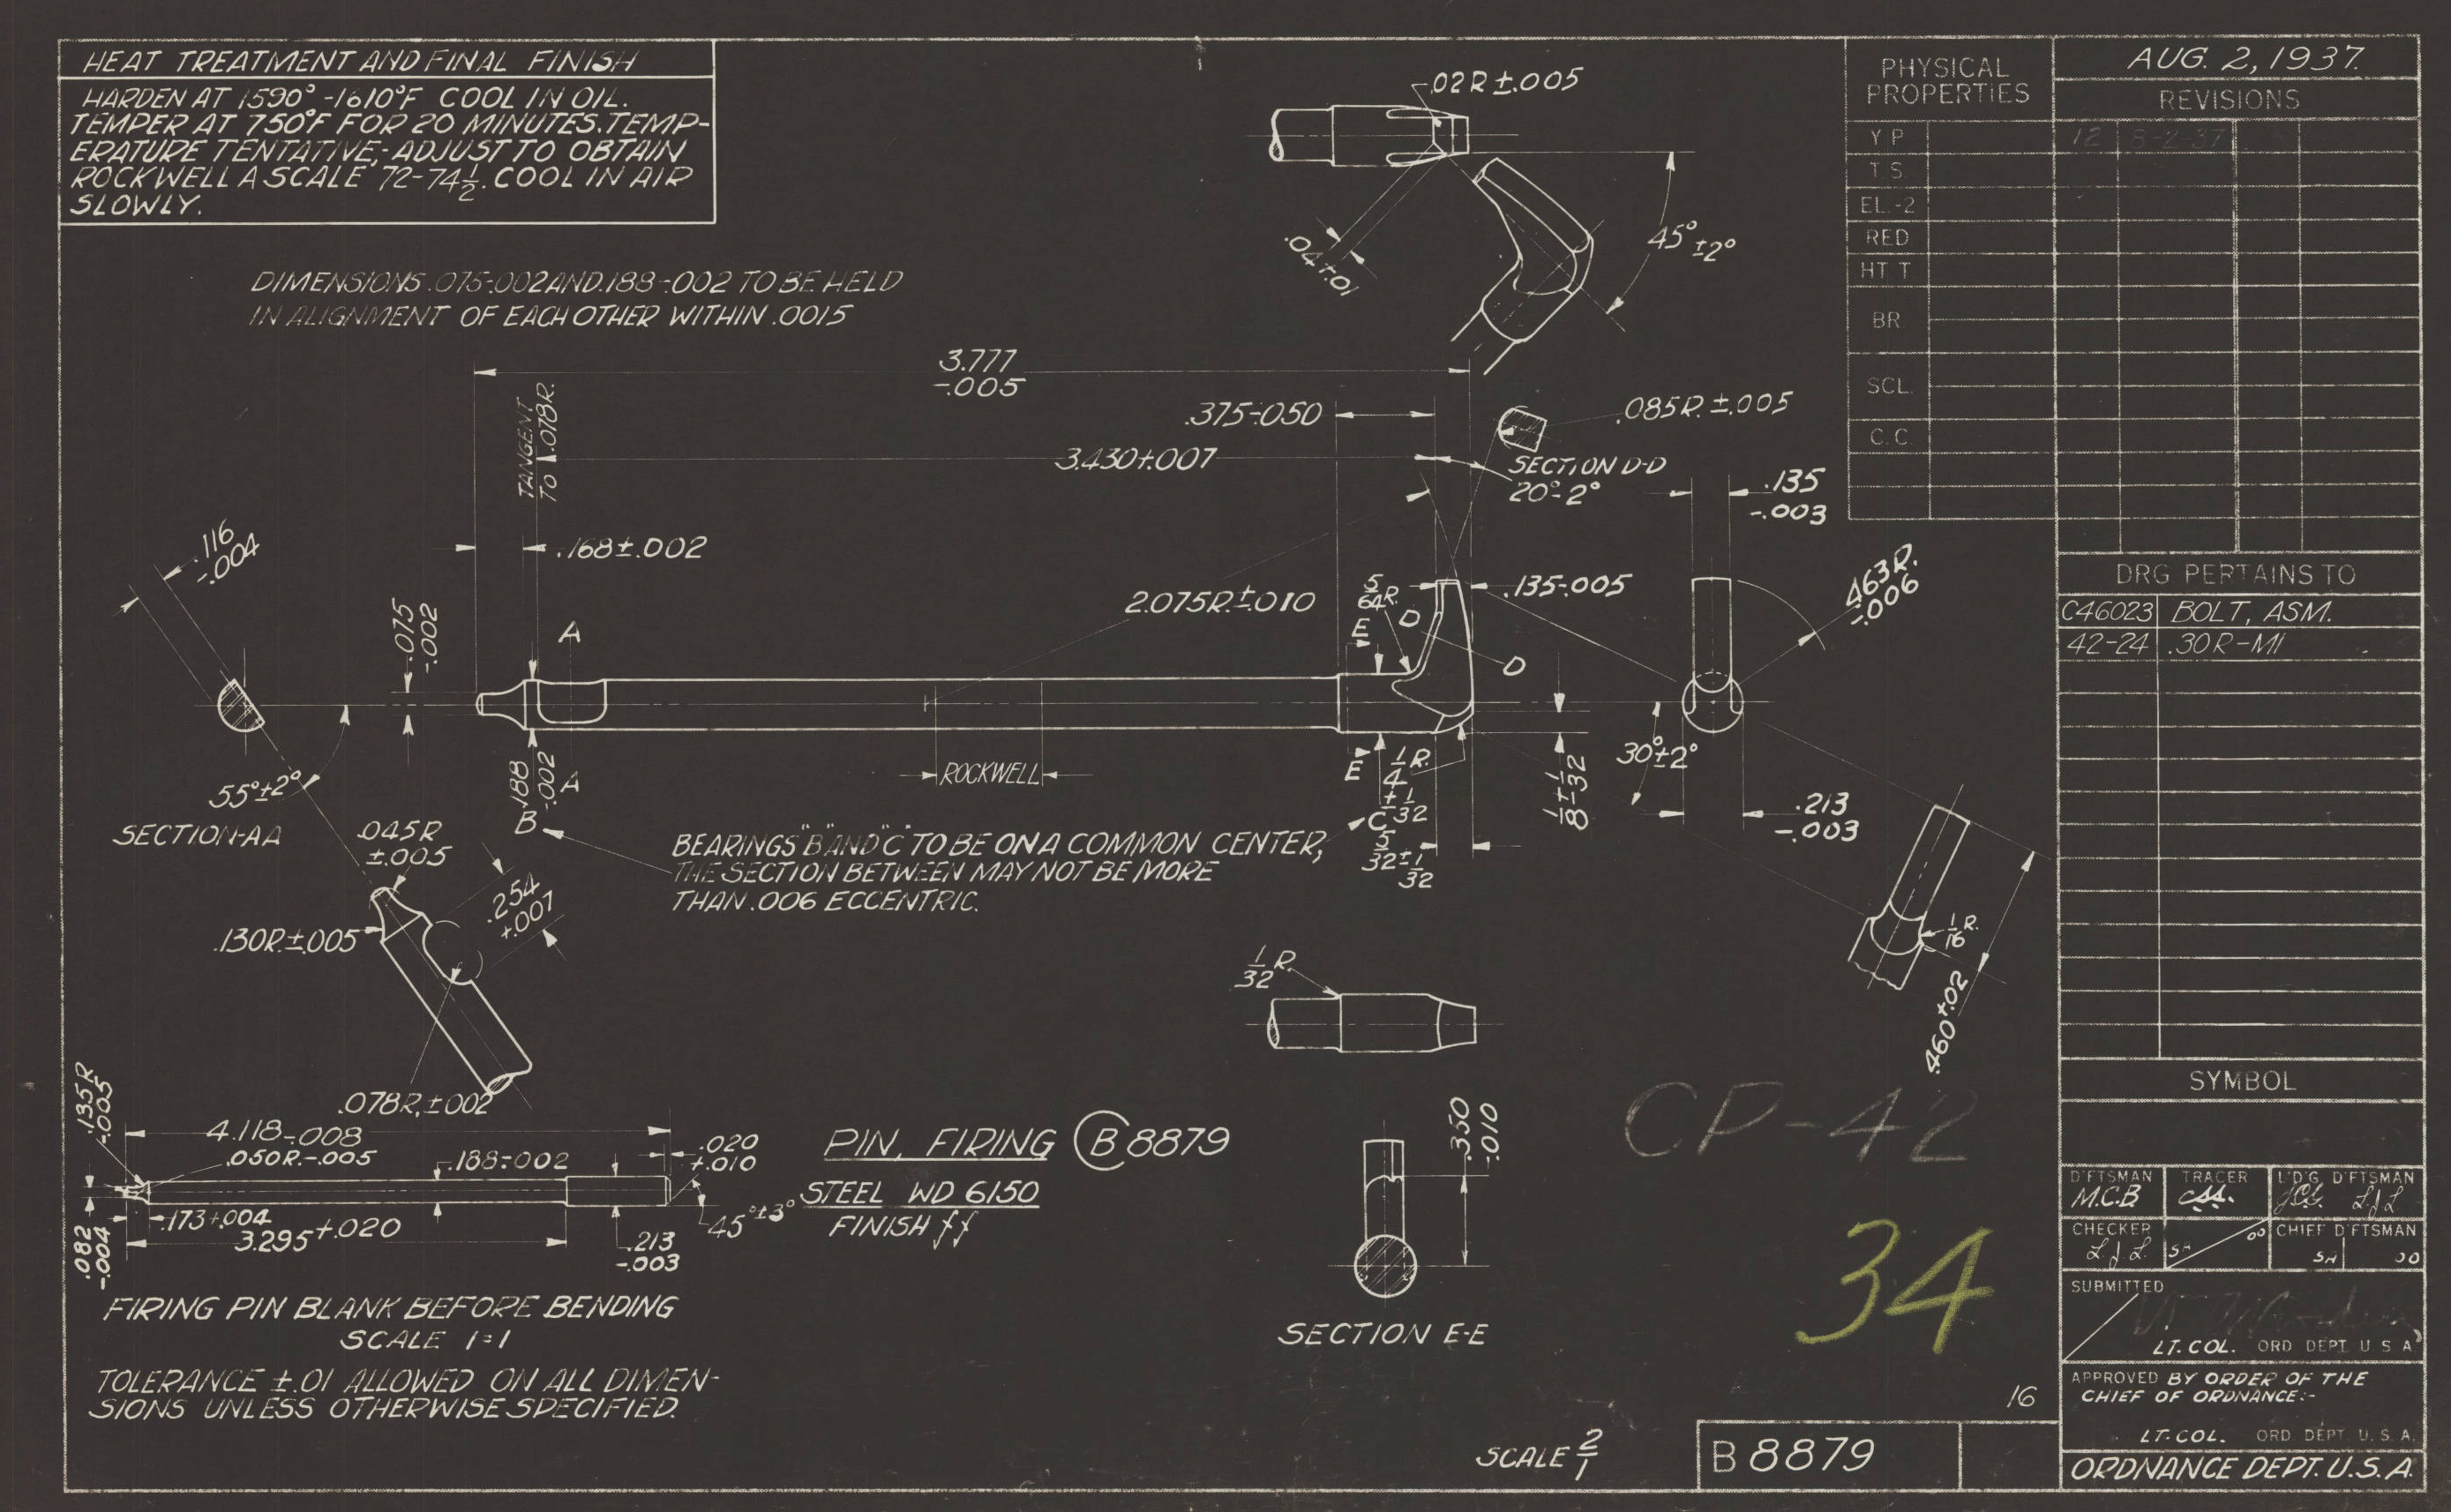 HEAT TREATMENT AND FINAL FINISH
HARDEN AT 1590°-1610°F COOL IN OIL.
TEMPER AT 750°F FOR 20 MINUTES. TEMP-
ERATURE TENTATIVE;-ADJUST TO OBTAIN
ROCKWELL A SCALE 72-74½. COOL IN AIR
SLOWLY.
DIMENSIONS .075-.002 AND .188-.002 TO BE HELD
IN ALIGNMENT OF EACH OTHER WITHIN .0015
.02R±.005
.04±.01
45°±2°
3.777
-.005
.375-.050
TANGENT
TO .078R.
3.430±.007
.085R.±.005
SECTION D-D
20°-2°
.135
-.003
.116
-.004
.168±.002
.075
-.002
2.075R.±.010
5/64R.
.135-.005
.463R.
-.006
A
E
D
D
A
.188
-.002
B
ROCKWELL
E
1/4R.
±1/32
C
5/32±1/32
1/8±1/32
30°±2°
.213
-.003
55°±2°
SECTION-AA
BEARINGS "B" AND "C" TO BE ON A COMMON CENTER,
THE SECTION BETWEEN MAY NOT BE MORE
THAN .006 ECCENTRIC.
.045R
±.005
.254
+.007
.130R.±.005
.078R.±002
1/16R.
.460±.02
1/32R.
.135R
-.005
4.118-.008
.050R.-.005
.188-.002
.020
+.010
.173+.004
3.295+.020
.082
-.004
.213
-.003
45°±3°
FIRING PIN BLANK BEFORE BENDING
SCALE 1=1
TOLERANCE ±.01 ALLOWED ON ALL DIMEN-
SIONS UNLESS OTHERWISE SPECIFIED.
PIN, FIRING B 8879
STEEL WD 6150
FINISH ff
.350
-.010
SECTION E-E
CP-42
34
16
SCALE 2/1
B 8879
PHYSICAL
PROPERTIES
Y P
T.S.
EL.-2
RED
HT T
BR.
SCL.
C.C.
AUG. 2, 1937.
REVISIONS
12 8-2-37
DRG PERTAINS TO
C46023 BOLT, ASM.
42-24 .30R-M1
SYMBOL
D'FTSMAN TRACER L'D'G. D'FTSMAN
M.C.B LJL
CHECKER CHIEF D'FTSMAN
LJL SA 00 SA 00
SUBMITTED
LT. COL. ORD DEPT U S A
APPROVED BY ORDER OF THE
CHIEF OF ORDNANCE:-
LT. COL. ORD. DEPT. U.S.A.
ORDNANCE DEPT. U.S.A.